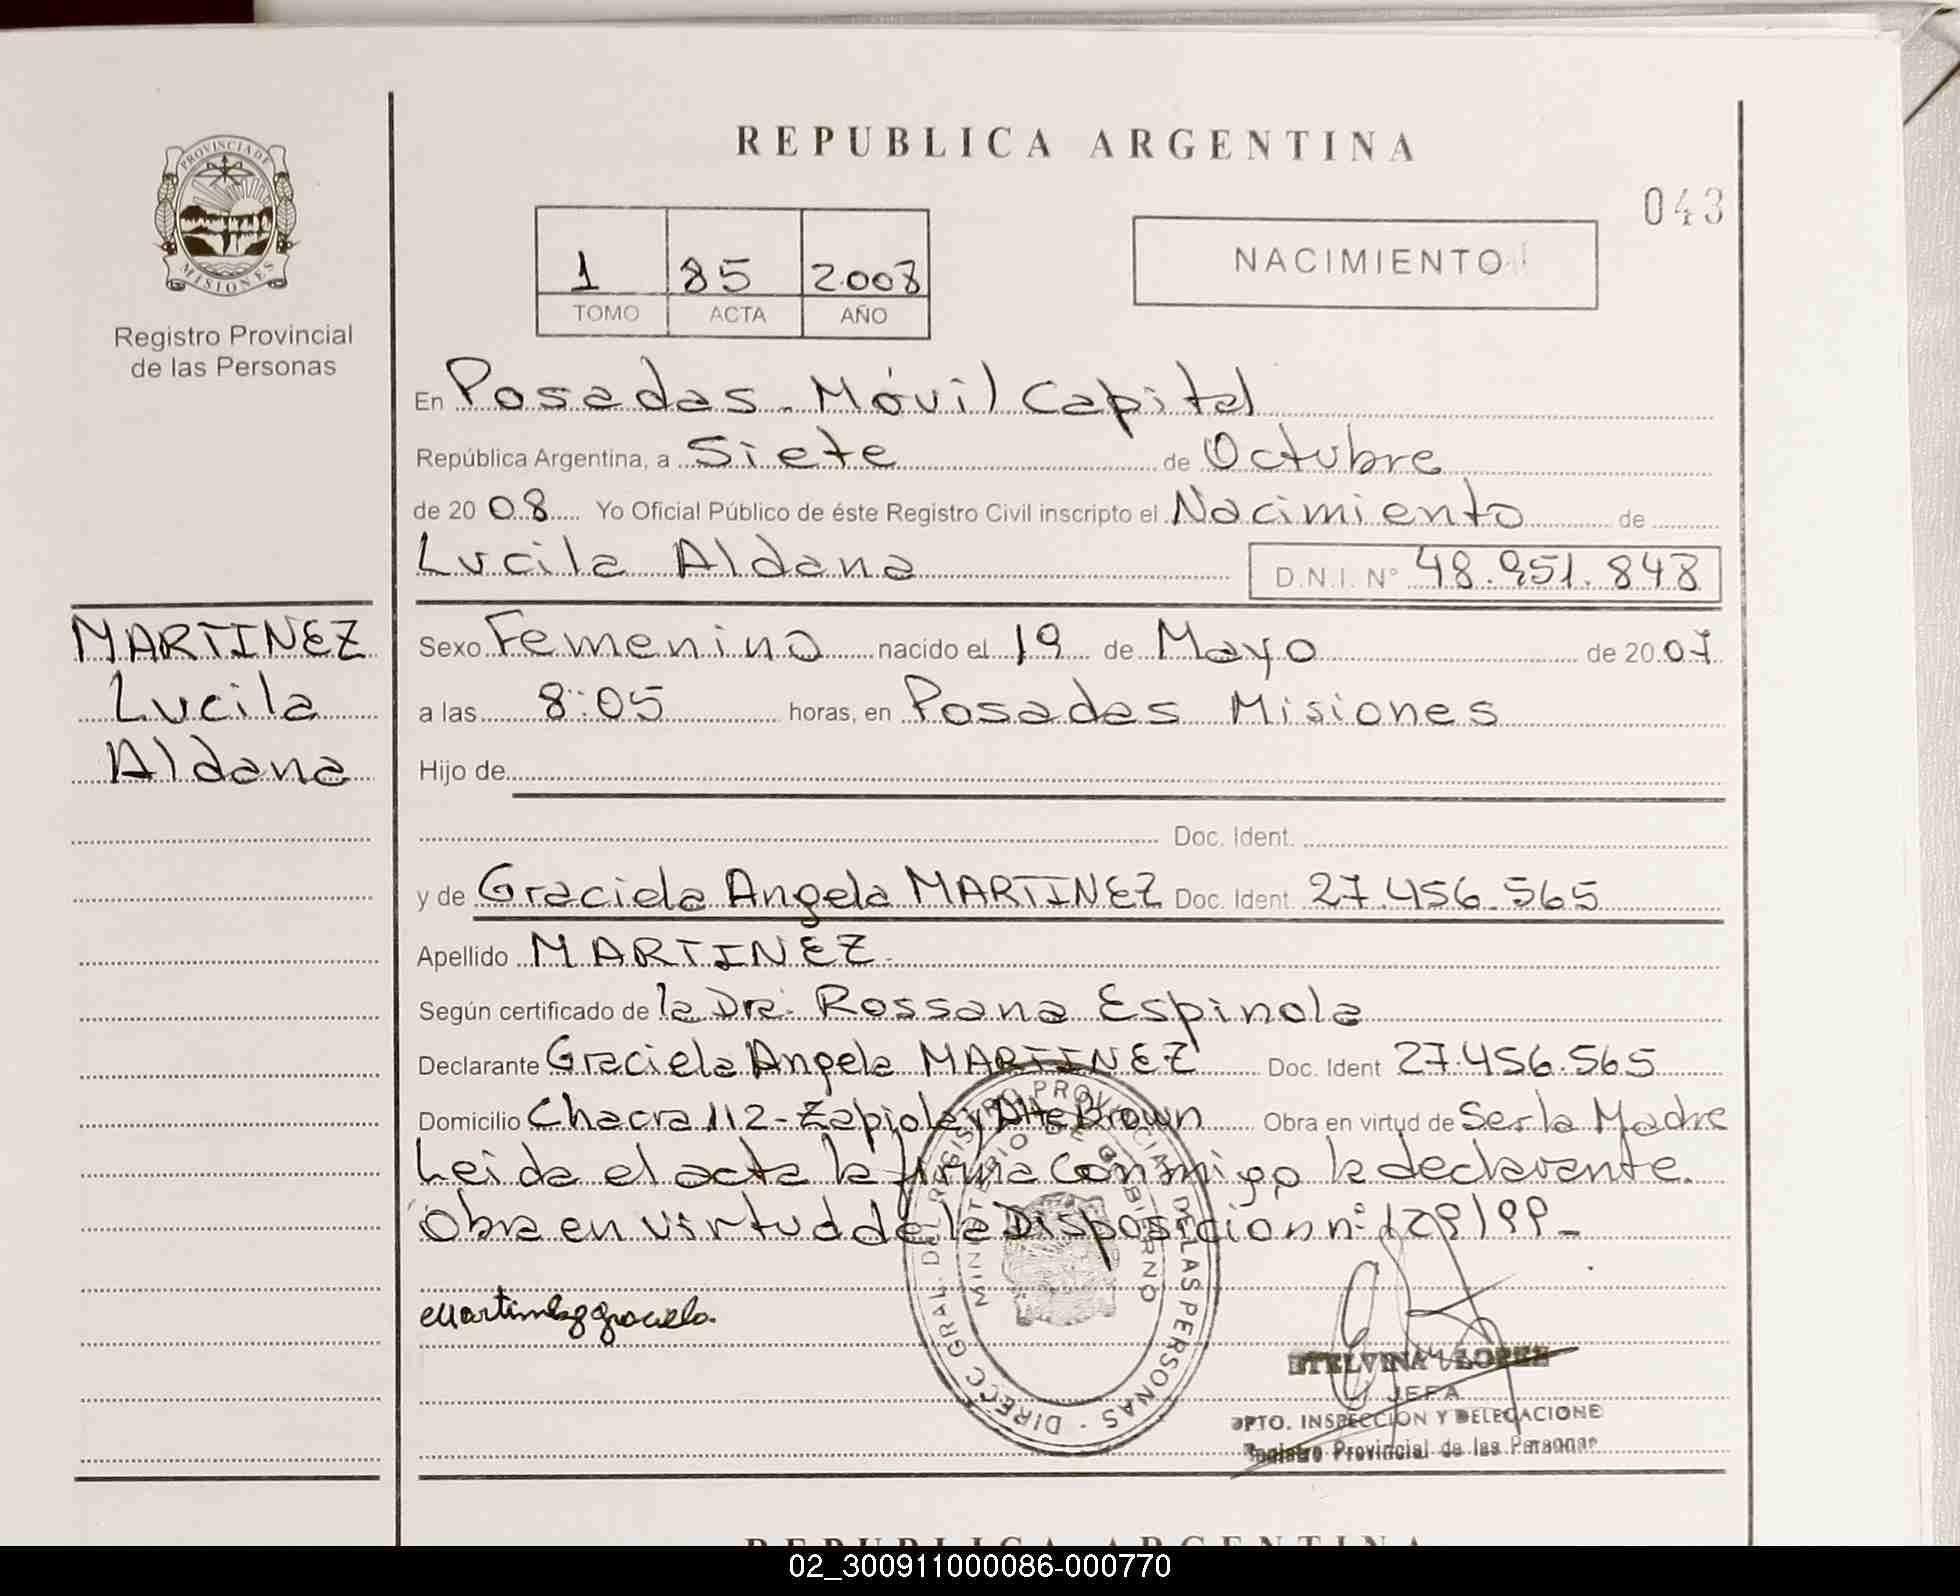 REPUBLICA ARGENTINA
043
PROVINCIA DE
MISIONES
Registro Provincial
de las Personas
1 85 2.008
TOMO ACTA AÑO
NACIMIENTO
En Posadas - Móvil Capital
República Argentina, a Siete de Octubre
de 2008 Yo Oficial Público de éste Registro Civil inscripto el Nacimiento de
Lucila Aldana D.N.I. Nº 48.951.848
MARTINEZ
Lucila
Aldana
Sexo Femenino nacido el 19 de Mayo de 2007
a las 8:05 horas, en Posadas Misiones
Hijo de
Doc. Ident.
y de Graciela Angela MARTINEZ Doc. Ident 27.456.565
Apellido MARTINEZ.
Según certificado de la Dra. Rossana Espinola
Declarante Graciela Angela MARTINEZ Doc. Ident 27.456.565
Domicilio Chacra 112 - Zapiola y Alte Brown Obra en virtud de Ser la Madre
Leida el acta la firma Conmigo la declarante.
Obra en virtud de la Disposición nº 129/99 -
Martinez graciela.
DIRECC GRAL. DEL REGISTRO PROVINCIAL DE LAS PERSONAS -
MINISTERIO DE GOBIERNO
ETELVINA LOPEZ
JEFA
DPTO. INSPECCION Y DELEGACIONE
Registro Provincial de las Personas
REPUBLICA ARGENTINA
02_300911000086-000770